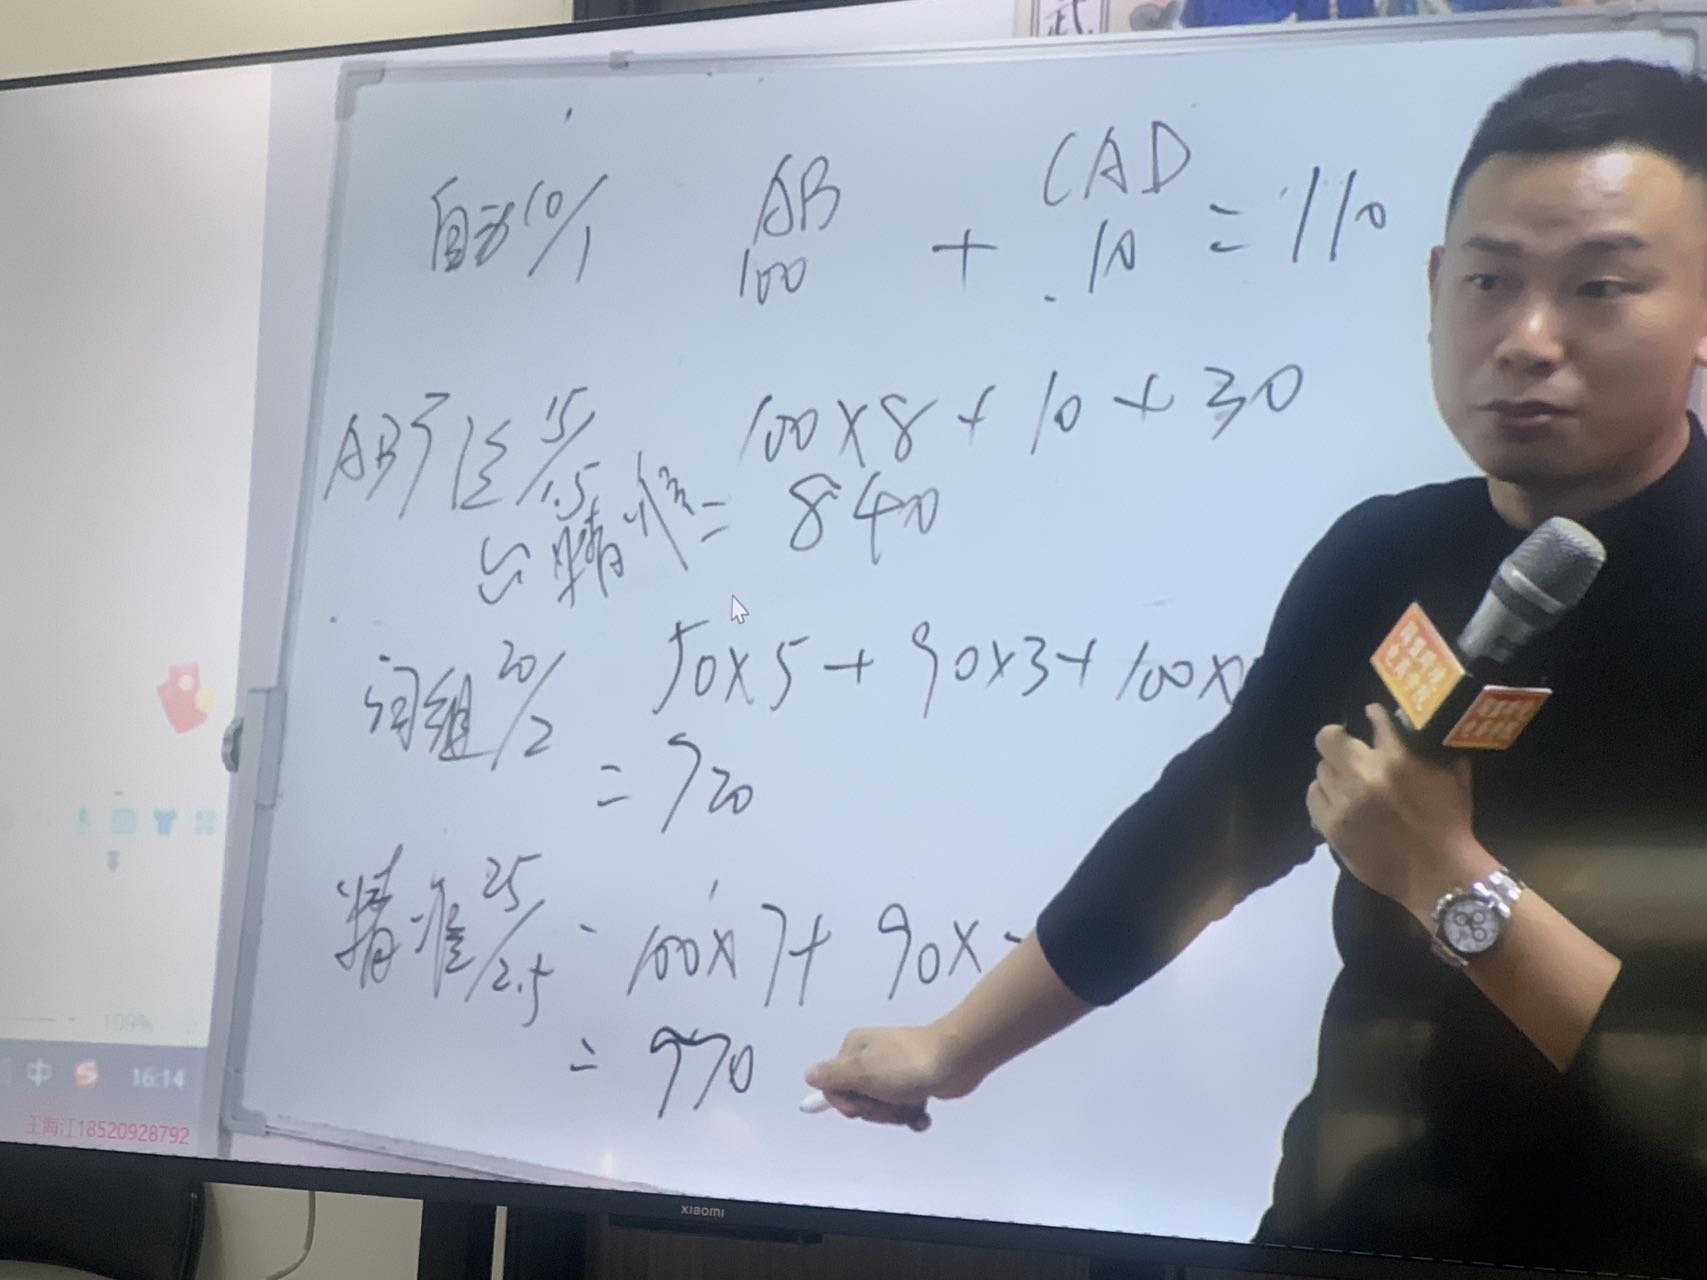 武
自动 10/1 AB 100 + CAD 10 = 110
AB 15/1.5 100×8+10+30
精准 = 840
词组 20/2 50×5+90×3+100×
=920
精准 25/2.5 = 100×7+90×
=970
109%
中 S 16:14
王海江18520928792
xiaomi